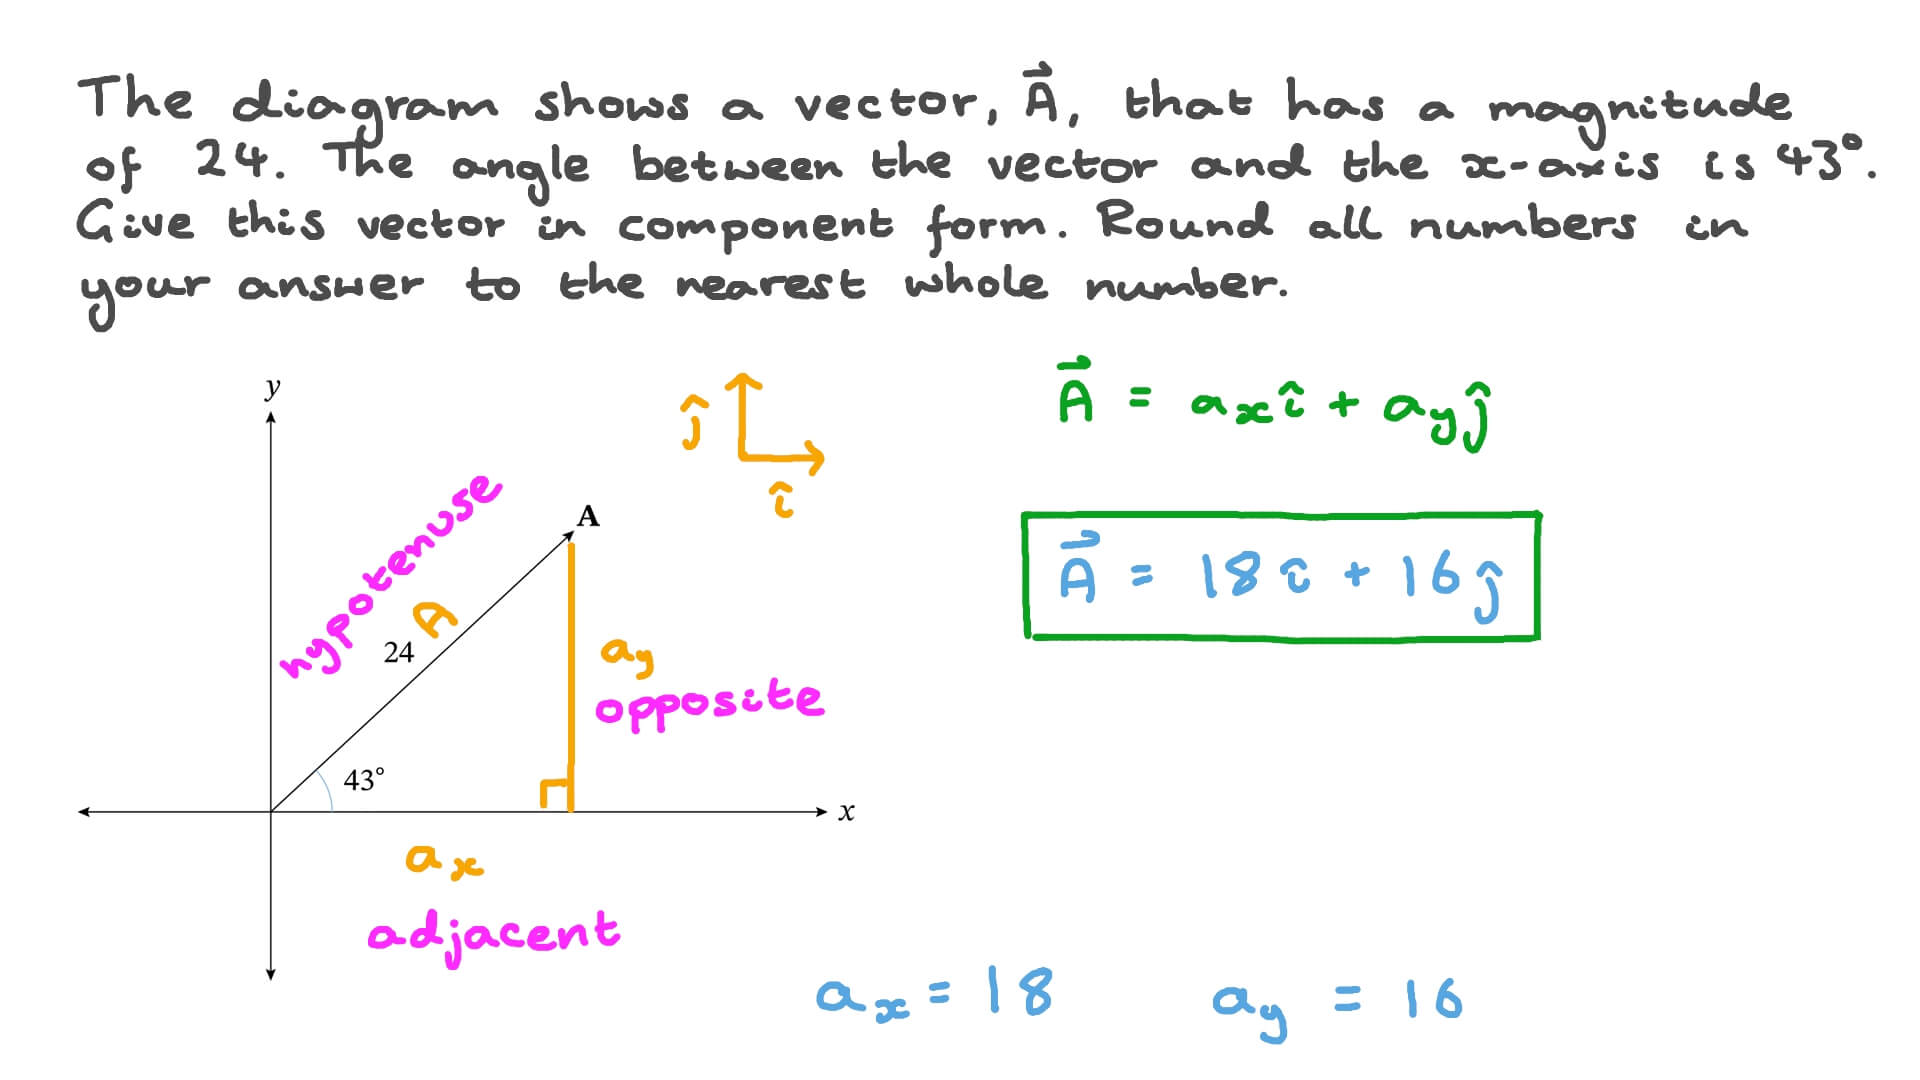 The diagram shows a vector, A⃗, that has a magnitude
of 24. The angle between the vector and the x-axis is 43°.
Give this vector in component form. Round all numbers in
your answer to the nearest whole number.
y
ĵ
î
A⃗ = aₓî + a_yĵ
hypotenuse
A
A
24
A⃗ = 18î + 16ĵ
a_y
opposite
43°
x
aₓ
adjacent
aₓ = 18 a_y = 16